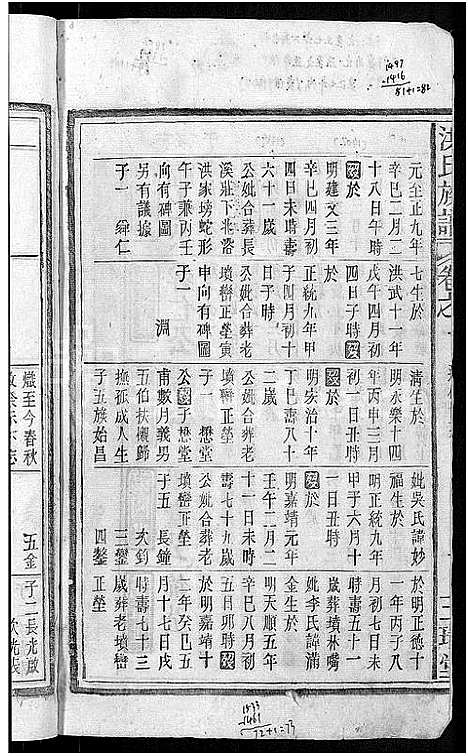 1497
-1416
81+1=82
洪氏族譜
卷之
元至正九年
辛巳二月二
十八日午時
歿於
明建文三年
辛巳四月初
四日未時壽
六十一歲
公妣合葬長
溪莊下北溶
洪家塝蛇形
午子兼丙壬
向有碑圖
另有議據
子一 舜仁
七生於
洪武十一年
戊午四月初
四日子時歿
於
正統九年甲
子四月初十
公妣合葬老
墳巒正塋寅
申向有碑圖
子一 淵
清生於
明永樂十四
年丙申三月
五日寅時歿於
明宏治十年
丁巳壽八十
二歲
公妣合葬老
墳巒正塋
子一 懋堂
公歿子懋堂
甫數月義男
五伯扶櫬歸
撫孤成人生
子五族始昌
妣吳氏諱妙
福生於
明正統九年
甲子六月十
一日丑時歿於
明嘉靖元年
壬午二月二
十一日未時
壽七十九歲
公妣合葬老
墳巒正塋
子五 長鐘
次鈞
三璽
四鏊
於明正德十
一年丙子八
月初七日未
時壽五十一
歲葬墳林嘴
妣李氏諱滿
金生於
明天順五年
辛巳八月初
五日卯時歿
於明嘉靖十
二年癸巳五
月十七日戌
時壽七十三
歲葬老墳巒
正塋
1533
-1461
72+1=73
熾至今春秋
五金
子二長光啟